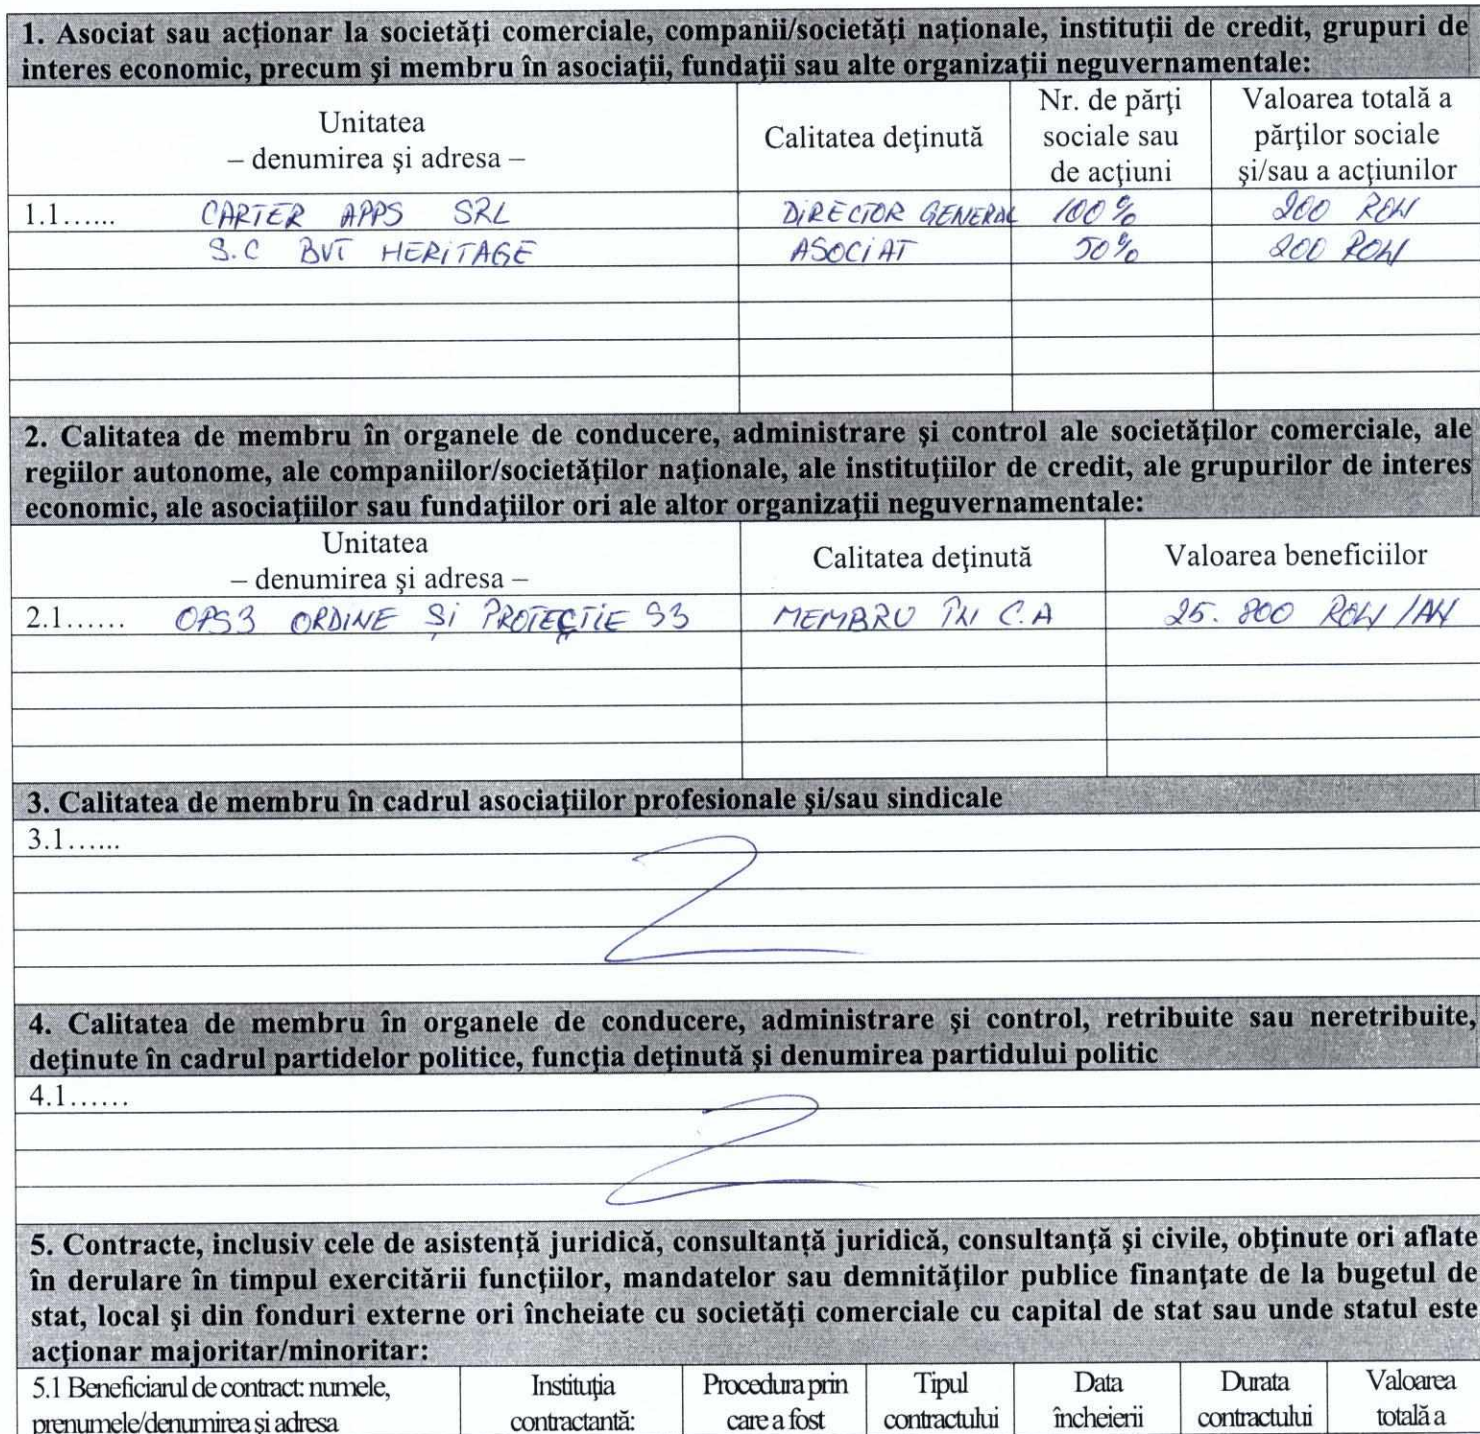 1. Asociat sau acţionar la societăţi comerciale, companii/societăţi naţionale, instituţii de credit, grupuri de
interes economic, precum şi membru în asociaţii, fundaţii sau alte organizaţii neguvernamentale:
Unitatea
– denumirea şi adresa –
Calitatea deţinută
Nr. de părţi
sociale sau
de acţiuni
Valoarea totală a
părţilor sociale
şi/sau a acţiunilor
1.1...... CARTER APPS SRL DIRECTOR GENERAL 100% 200 RON
S.C BVT HERITAGE ASOCIAT 50% 200 RON
2. Calitatea de membru în organele de conducere, administrare şi control ale societăţilor comerciale, ale
regiilor autonome, ale companiilor/societăţilor naţionale, ale instituţiilor de credit, ale grupurilor de interes
economic, ale asociaţiilor sau fundaţiilor ori ale altor organizaţii neguvernamentale:
Unitatea
– denumirea şi adresa –
Calitatea deţinută
Valoarea beneficiilor
2.1...... OPS3 ORDINE ȘI PROTECȚIE S3 MEMBRU ÎN C.A 25.800 RON/AN
3. Calitatea de membru în cadrul asociaţiilor profesionale şi/sau sindicale
3.1......
4. Calitatea de membru în organele de conducere, administrare şi control, retribuite sau neretribuite,
deţinute în cadrul partidelor politice, funcţia deţinută şi denumirea partidului politic
4.1......
5. Contracte, inclusiv cele de asistenţă juridică, consultanţă juridică, consultanţă şi civile, obţinute ori aflate
în derulare în timpul exercitării funcţiilor, mandatelor sau demnităţilor publice finanţate de la bugetul de
stat, local şi din fonduri externe ori încheiate cu societăţi comerciale cu capital de stat sau unde statul este
acţionar majoritar/minoritar:
5.1 Beneficiarul de contract: numele,
prenumele/denumirea şi adresa
Instituţia
contractantă:
Procedura prin
care a fost
Tipul
contractului
Data
încheierii
Durata
contractului
Valoarea
totală a